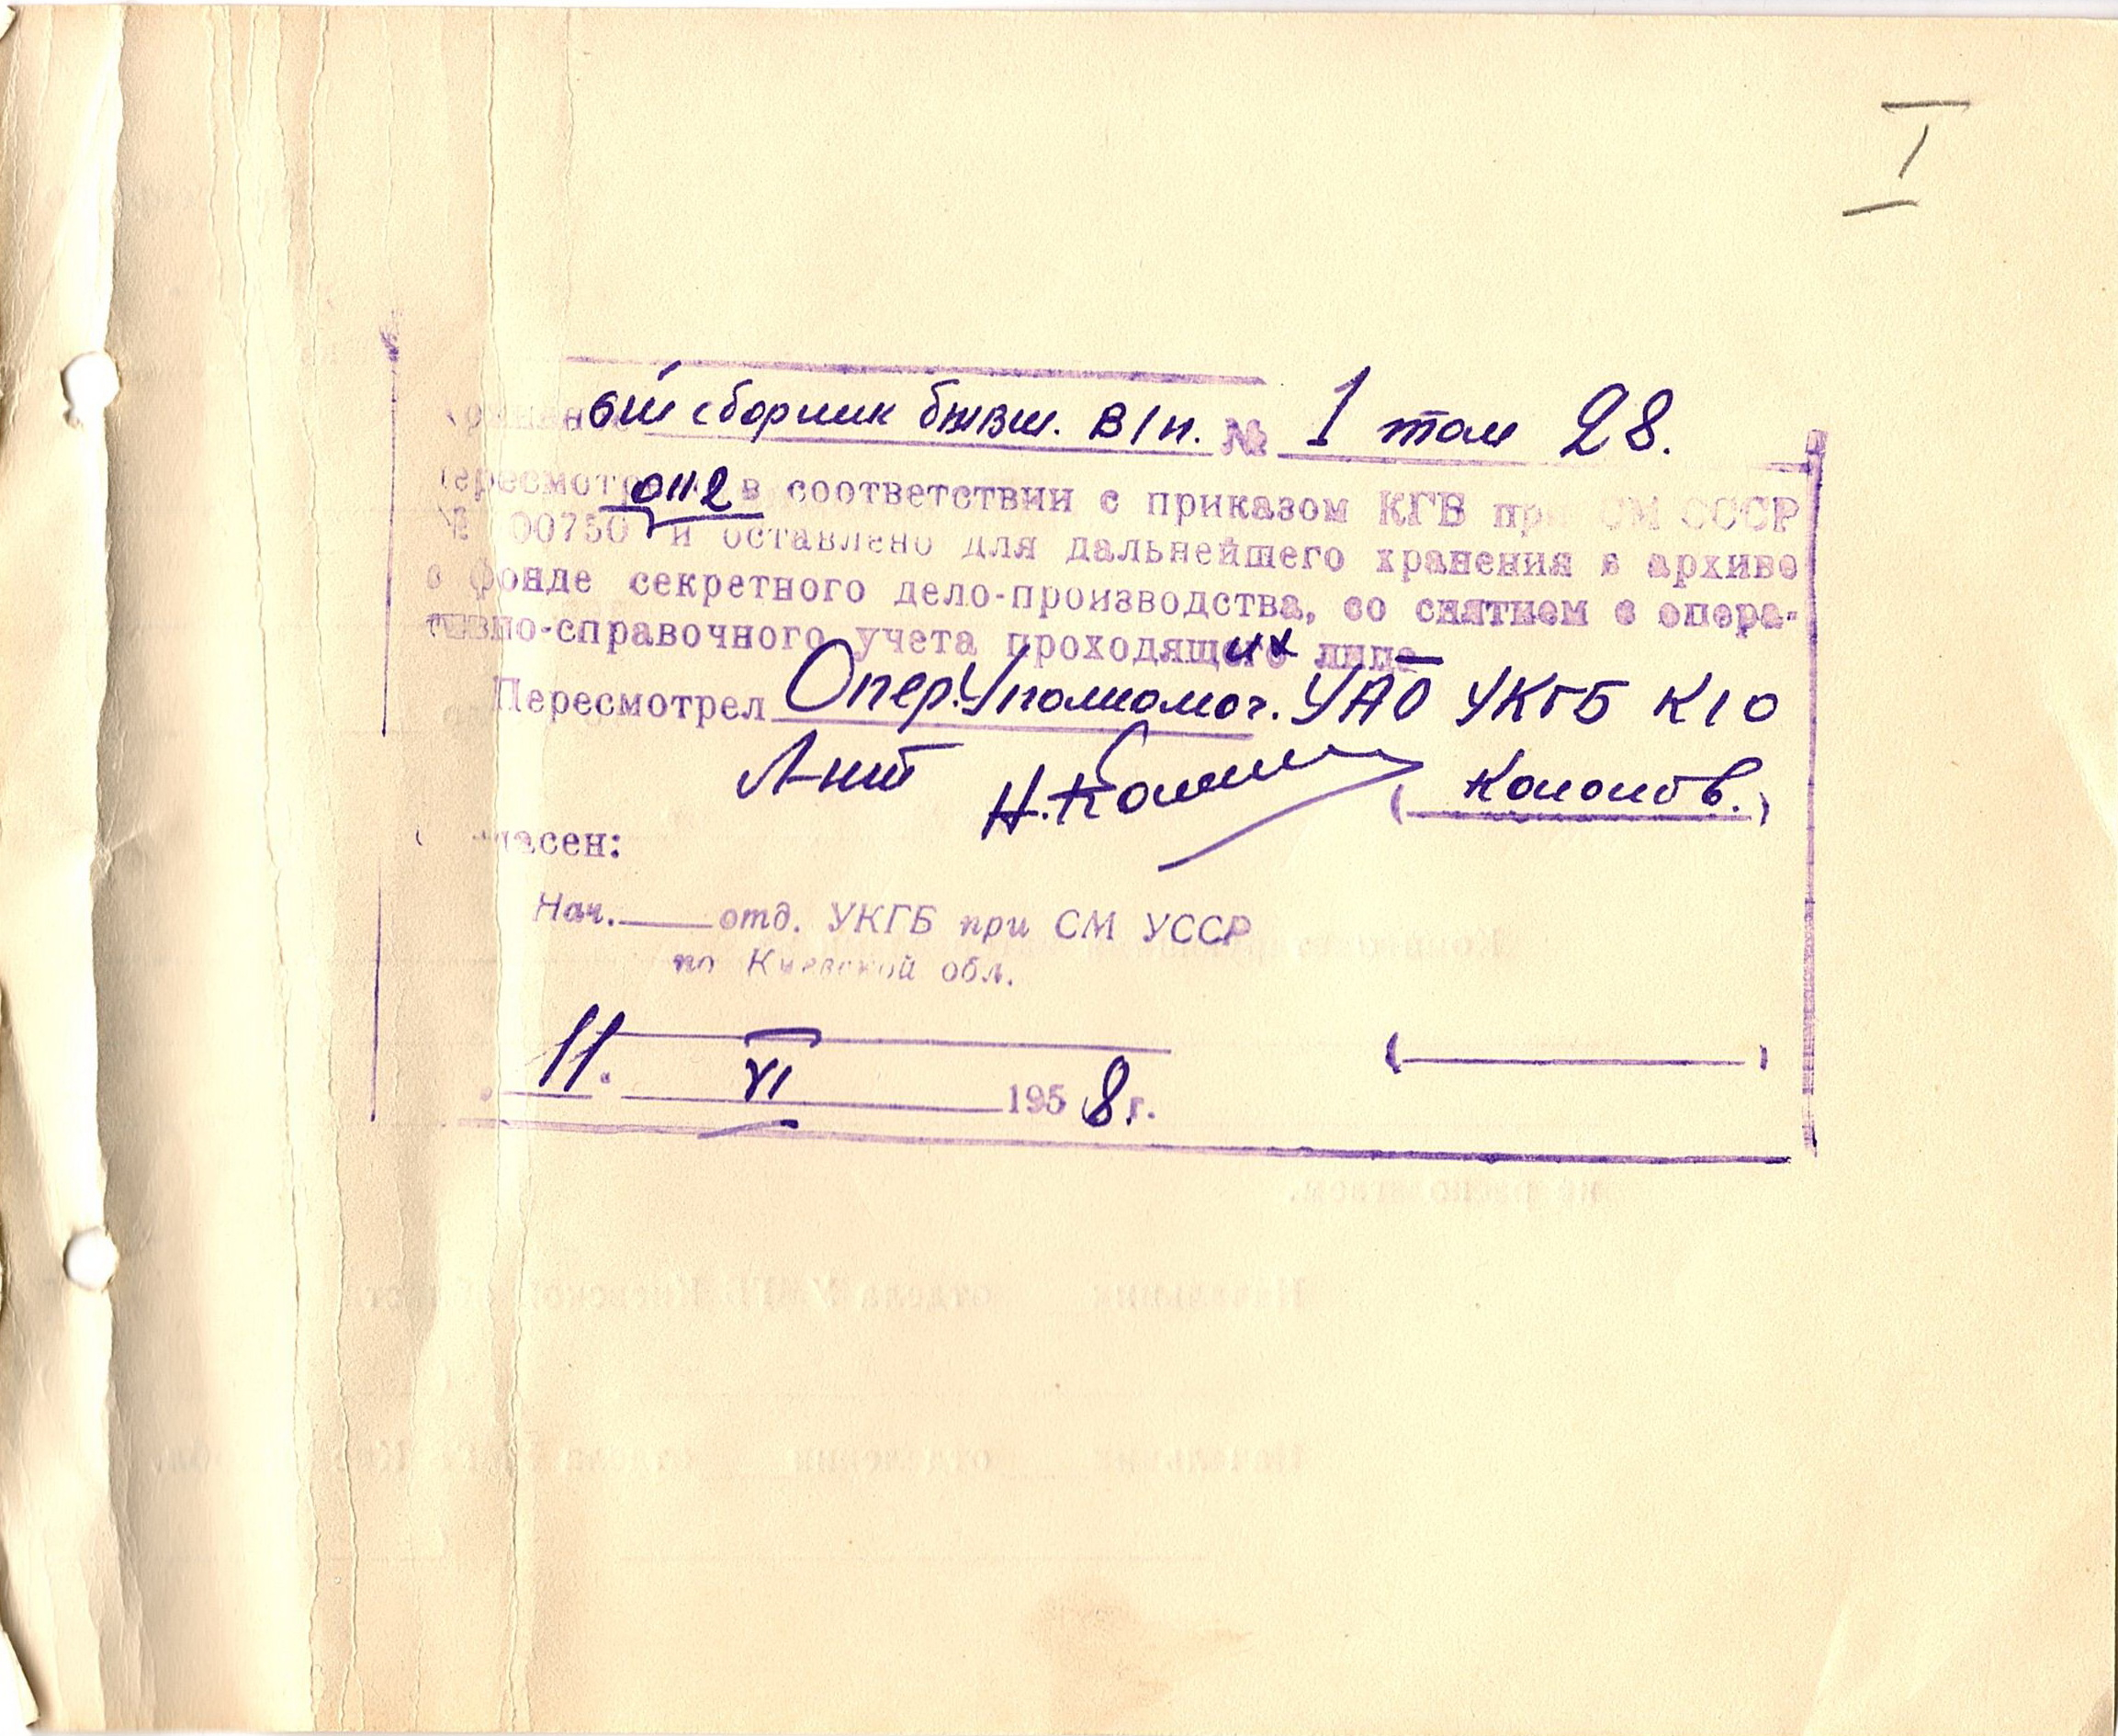 I
ый сборник бывш. в/п. № 1 том 28.
0112
пересмотрено в соответствии с приказом КГБ при СМ СССР
№ 00750 и оставлено для дальнейшего хранения в архиве
в фонде секретного дело-производства, со снятием с опера-
тивно-справочного учета проходящих лиц
Пересмотрел Опер. Уполномоч. УАО УКГБ К/О
Л-нт Н.
асен:
Нач. отд. УКГБ при СМ УССР
по Киевской обл.
11. VI 1958 г.